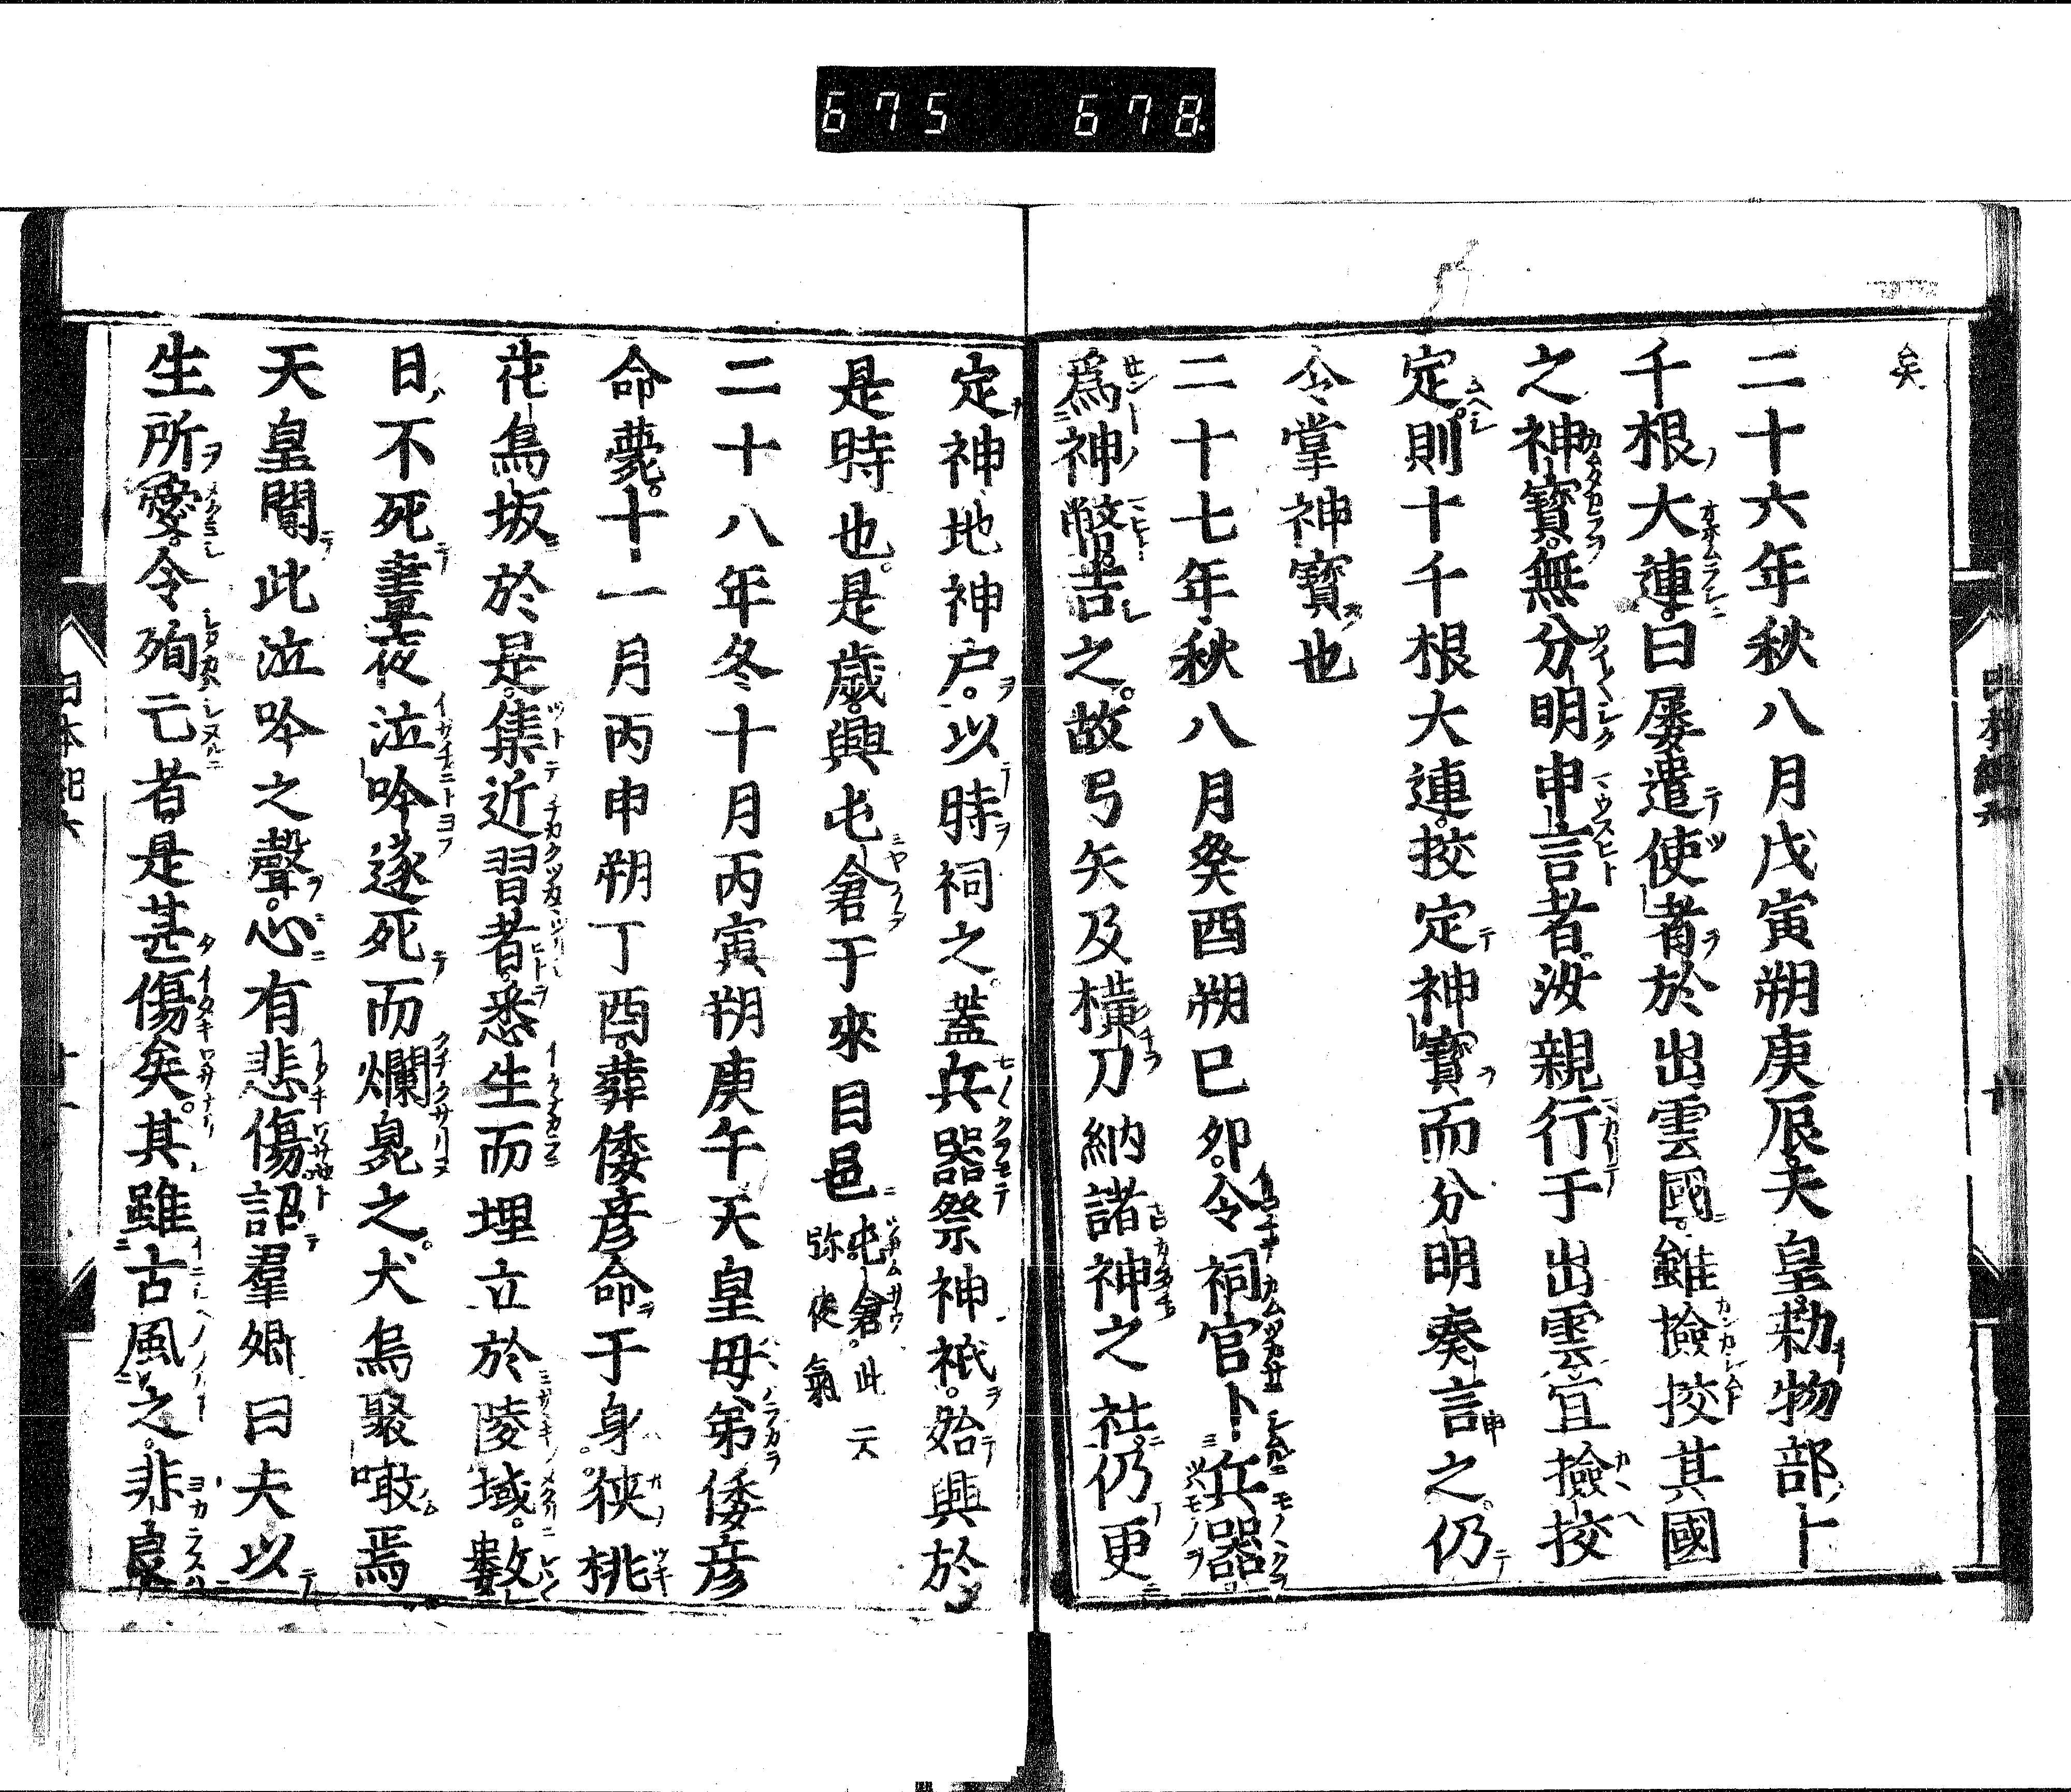 675 678.
矣
二十六年秋八月戊寅朔庚辰天皇勅物部十
千根大連曰屡遣使者於出雲國雖撿挍其國
之神寶無分明申言者汝親行于出雲宜撿挍
定則十千根大連挍定神寶而分明奏言之仍
令掌神寶也
二十七年秋八月癸酉朔已卯令祠官卜兵器
爲神幣吉之故弓矢及横刀納諸神之社仍更
定神地神户以時祠之蓋兵器祭神祇始興於
是時也是歲興屯倉于來目邑屯倉此云
弥夜氣
二十八年冬十月丙寅朔庚午天皇母弟倭彦
命薨十一月丙申朔丁酉葬倭彦命于身狭桃
花鳥坂於是集近習者悉生而埋立於陵域數
日不死晝夜泣吟遂死而爛臰之犬烏聚噉焉
天皇聞此泣吟之聲心有悲傷詔羣卿曰夫以
生所愛令殉亡者是甚傷矣其雖古風之非良